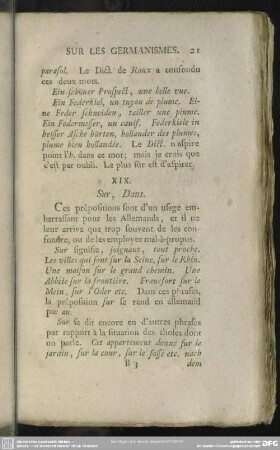 SUR LES GERMANISMES. 21
parasol. Le Dict. de Roux a confondu
ces deux mots.
Ein schöner Prospect, une belle vue.
Ein Federkiel, un tuyau de plume. Ei-
ne Feder schneiden, tailler une plume.
Ein Federmesser, un canif. Federkiele in
heisser Asche härten, hollander des plumes,
plume bien hollandée. Le Dict. n'aspire
point l'h. dans ce mot; mais je crois que
c'est par oubli. Le plus sûr est d'aspirer.
XIX.
Sur, Dans.
Ces prépositions sont d'un usage em-
barrassant pour les Allemands, et il ne
leur arrive que trop souvent de les con-
fondre, ou de les employer mal-à-propos.
Sur signifie, joignant, tout proche.
Les villes qui sont sur la Seine, sur le Rhin.
Une maison sur le grand chemin. Une
Abbaie sur la frontière. Francfort sur le
Mein, sur l'Oder etc. Dans ces phrases,
la préposition sur se rend en allemand
par an.
Sur se dit encore en d'autres phrases
par rapport à la situation des choses dont
on parle. Cet appartement donne sur le
jardin, sur la cour, sur le fossé etc. nach
B 3 dem